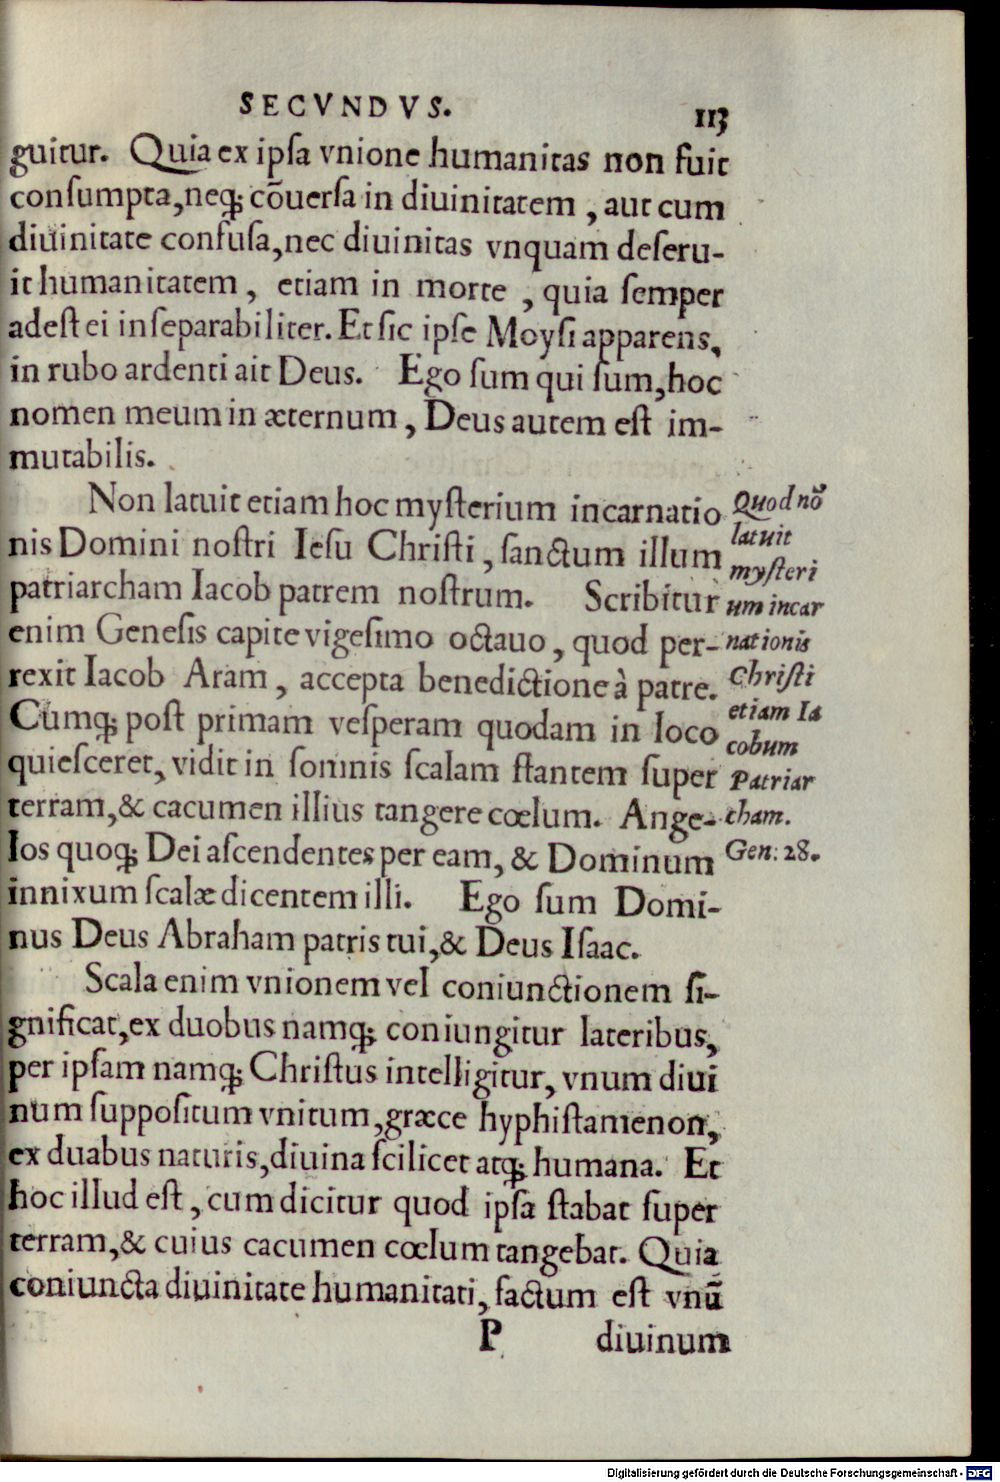 SECVNDVS.
113
guitur. Quia ex ipſa vnione humanitas non fuit
conſumpta, neq; cōuerſa in diuinitatem, aut cum
diuinitate confuſa, nec diuinitas vnquam deſeru-
it humanitatem, etiam in morte, quia ſemper
adeſt ei inſeparabiliter. Et ſic ipſe Moyſi apparens,
in rubo ardenti ait Deus. Ego ſum qui ſum, hoc
nomen meum in æternum, Deus autem eſt im-
mutabilis.
Non latuit etiam hoc myſterium incarnatio
nis Domini noſtri Ieſu Chriſti, ſanctum illum
patriarcham Iacob patrem noſtrum. Scribitur
enim Geneſis capite vigeſimo octauo, quod per-
rexit Iacob Aram, accepta benedictione à patre.
Cumq; poſt primam veſperam quodam in loco
quieſceret, vidit in ſomnis ſcalam ſtantem ſuper
terram, & cacumen illius tangere cœlum. Ange-
los quoq; Dei aſcendentes per eam, & Dominum
innixum ſcalæ dicentem illi. Ego ſum Domi-
nus Deus Abraham patris tui, & Deus Iſaac.
Quod nō
latuit
myſteri
um incar
nationis
Chriſti
etiam Ia
cobum
Patriar
cham.
Gen. 28.
Scala enim vnionem vel coniunctionem ſi-
gnificat, ex duobus namq; coniungitur lateribus,
per ipſam namq; Chriſtus intelligitur, vnum diui
num ſuppoſitum vnitum, græce hyphiſtamenon,
ex duabus naturis, diuina ſcilicet atq; humana. Et
hoc illud eſt, cum dicitur quod ipſa ſtabat ſuper
terram, & cuius cacumen cœlum tangebat. Quia
coniuncta diuinitate humanitati, factum eſt vnū
P diuinum
Digitalisierung gefördert durch die Deutsche Forschungsgemeinschaft - DFG